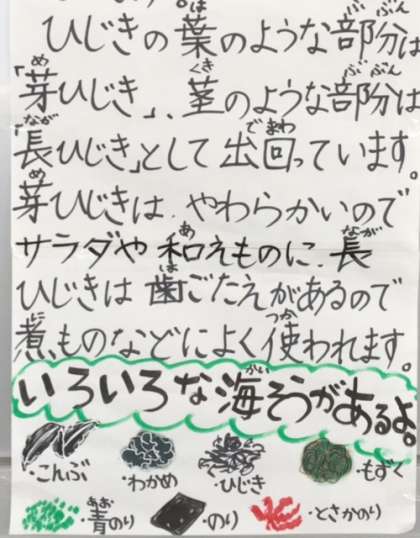 ひじきの葉のような部分は
「芽ひじき」、茎のような部分は
「長ひじき」として出回っています。
芽ひじきは、やわらかいので
サラダや和えものに、長
ひじきは歯ごたえがあるので
煮ものなどによく使われます。
いろいろな海そうがあるよ。
・こんぶ ・わかめ ・ひじき ・もずく
・青のり ・のり ・とさかのり